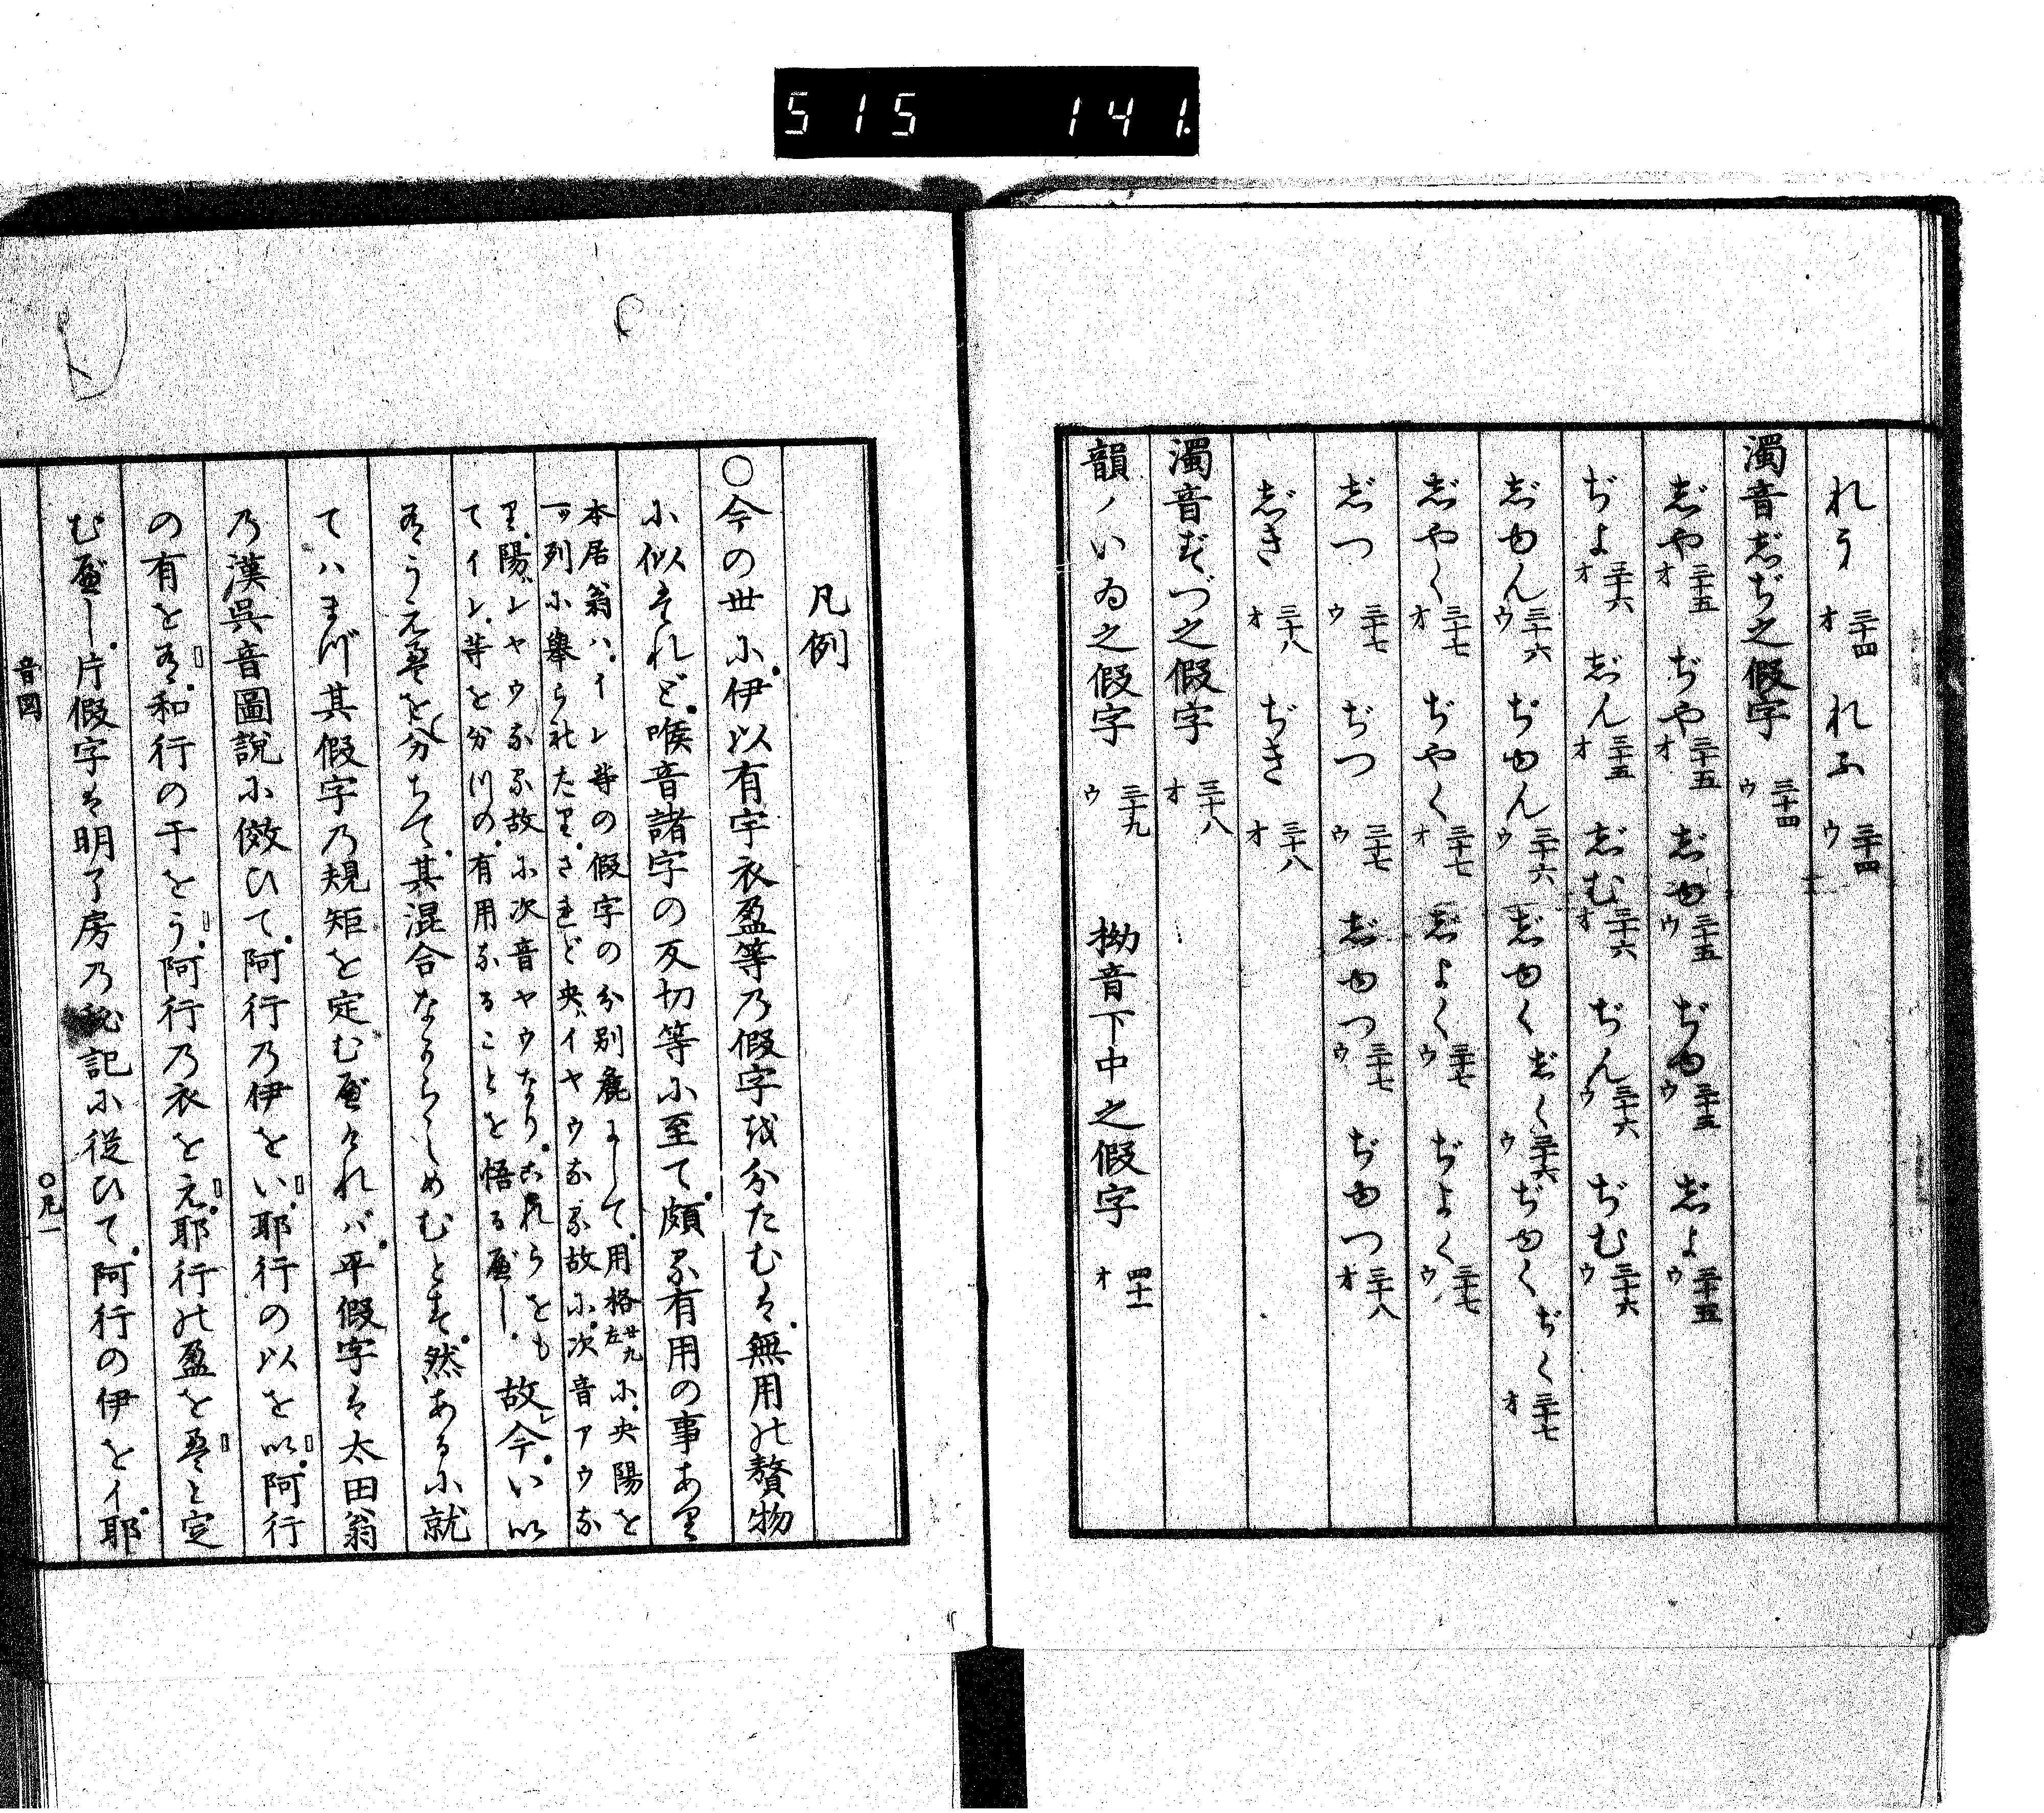 515 141.
れう 三十四オ れふ 三十四ウ
濁音志ぢ之假字 三十四ウ
志゛や 三十五オ ぢや 三十五オ 志゛ゆ 三十五ウ ぢゆ 三十五ウ 志゛よ 三十五ウ
ぢよ 三十六オ 志゛ん 三十五オ 志゛む 三十六オ ぢん 三十六ウ ぢむ 三十六ウ
志゛ゆん 三十六ウ ぢゆん 三十六ウ 志゛ゆく 志゛く 三十六ウ ぢゆく ぢく 三十七オ
志゛やく 三十七オ ぢやく 三十七オ 志゛よく 三十七ウ ぢよく 三十七ウ
志゛つ 三十七ウ ぢつ 三十七ウ 志゛ゆつ 三十七ウ ぢゆつ 三十八オ
志゛き 三十八オ ぢき 三十八オ
濁音ずづ之假字 三十八オ
韻ノいゐ之假字 三十九ウ 拗音下中之假字 四十一オ
凡例
○今の世小伊以有宇衣盈等乃假字越分たむは無用能贅物
小似たれど喉音諸字の反切等小至て頗る有用の事あり
本居翁ハイレ等の假字の分別麁にして用格廿九左小央陽を
一列小舉られたりされど央イヤウなる故小次音アウな
り陽レヤウなる故小次音ヤウなりこれらをも
てイレ等を分川の有用なることを悟るべし 故今い以
をう元盈を分ちて其混合なからしめむとす然あるに就
てハまづ其假字乃規矩を定むべければ平假字は太田翁
乃漢呉音圖説小傚ひて阿行乃伊をい耶行の以を以阿行
の有を有和行の于をう阿行乃衣を元耶行能盈を盈と定
むべし片假字は明了房乃秘記小從ひて阿行の伊をイ耶
音図 ○凡一